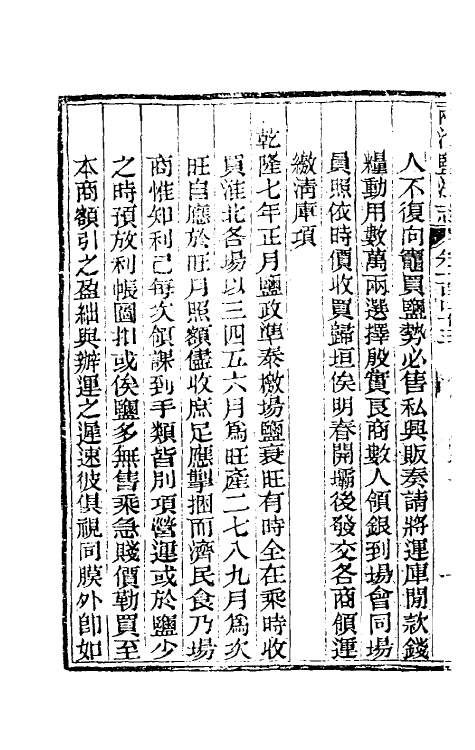 兩淮鹽法志
人不復向竈買鹽勢必售私興販奏請將運庫閒款錢
糧動用數萬兩選擇殷實良商數人領銀到塲會同塲
員照依時價收買歸垣俟明春開壩後發交各商領運
繳淸庫項
乾隆七年正月鹽政準泰檄塲鹽衰旺有時全在乘時收
買淮北各塲以三四五六月爲旺產二七八九月爲次
旺自應於旺月照額儘收庶足應掣捆而濟民食乃塲
商惟知利己每次領課到手類皆別項營運或於鹽少
之時預放利帳圖扣或俟鹽多無售乘急賤價勒買至
本商額引之盈絀與辦運之遲速彼俱視同膜外卽如